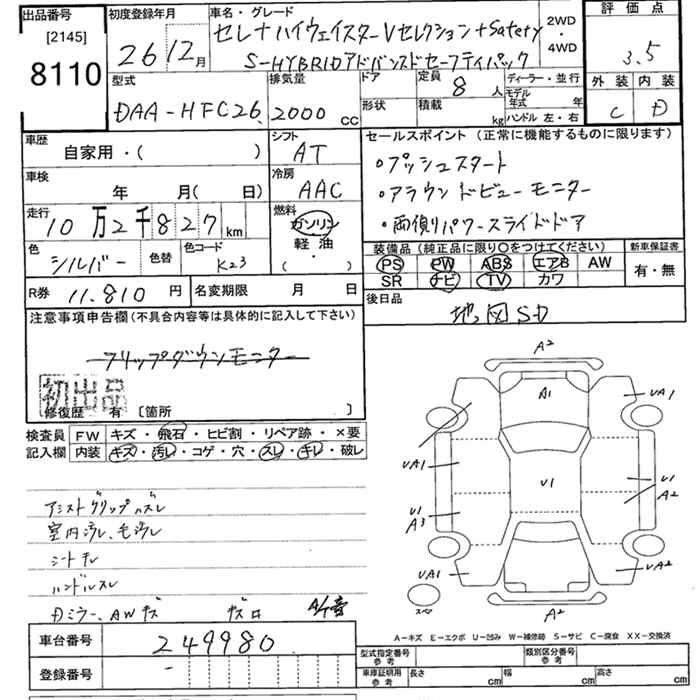 出品番号
[2145]
8110
初度登録年月
26年12月
車名・グレード
セレナ ハイウェイスターVセレクション+Safety
S-HYBRIDアドバンスドセーフティパック
2WD
・
4WD
評価点
3.5
外装 内装
C D
型式
DAA-HFC26
排気量
2000 cc
ドア
形状
定員 8 人
積載 kg
ディーラー・並行
モデル年式 年
ハンドル 左・右
車歴
自家用・( )
シフト
AT
車検
年 月( 日)
冷房
AAC
走行
10万2千827km
燃料
ガソリン
軽油
・
( )
色
シルバー
色替
色コード
K23
R券 11,810 円
名変期限 月 日
セールスポイント(正常に機能するものに限ります)
・プッシュスタート
・アラウンドビューモニター
・両側パワースライドドア
装備品(純正品に限り○をつけてください)
PS PW ABS エアB AW
SR ナビ TV カワ
新車保証書
有・無
後日品
地図SD
注意事項申告欄(不具合内容等は具体的に記入して下さい)
フリップダウンモニター
初出品
修復歴 有 〔箇所 〕
検査員記入欄
FW キズ・飛石・ヒビ割・リペア跡・×要
内装 キズ・汚レ・コゲ・穴・スレ・キレ・破レ
アシストグリップハズレ
室内汚レ、毛汚レ
シートキレ
ハンドルスレ
Dミラー、AWキズ
車台番号 249980
登録番号 -
A2
A1
UA1
UA1
U1
U1
A2
U1
A3
UA1
UA2
A2
スペア
A-キズ E-エクボ U-凹み W-補修跡 S-サビ C-腐食 XX-交換済
型式指定番号
参考
類別区分番号
参考
車庫証明用
参考
長さ cm
幅 cm
高さ cm